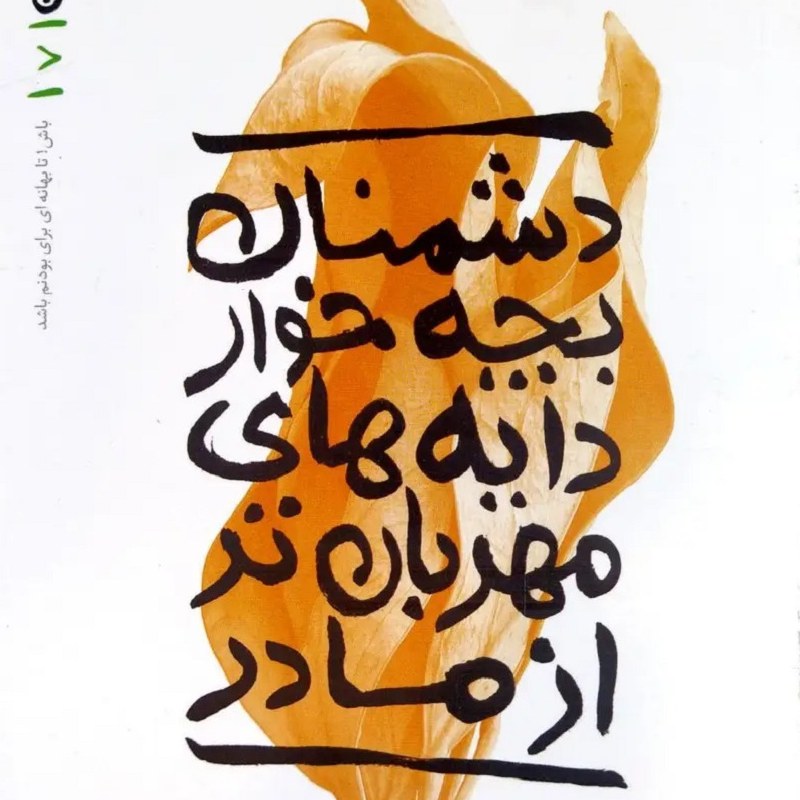 دشمنان
بچه خوار
دایه های
مهربان تر
از مادر
باش! تا بهانه ای برای بودنم باشد
۱۷۱